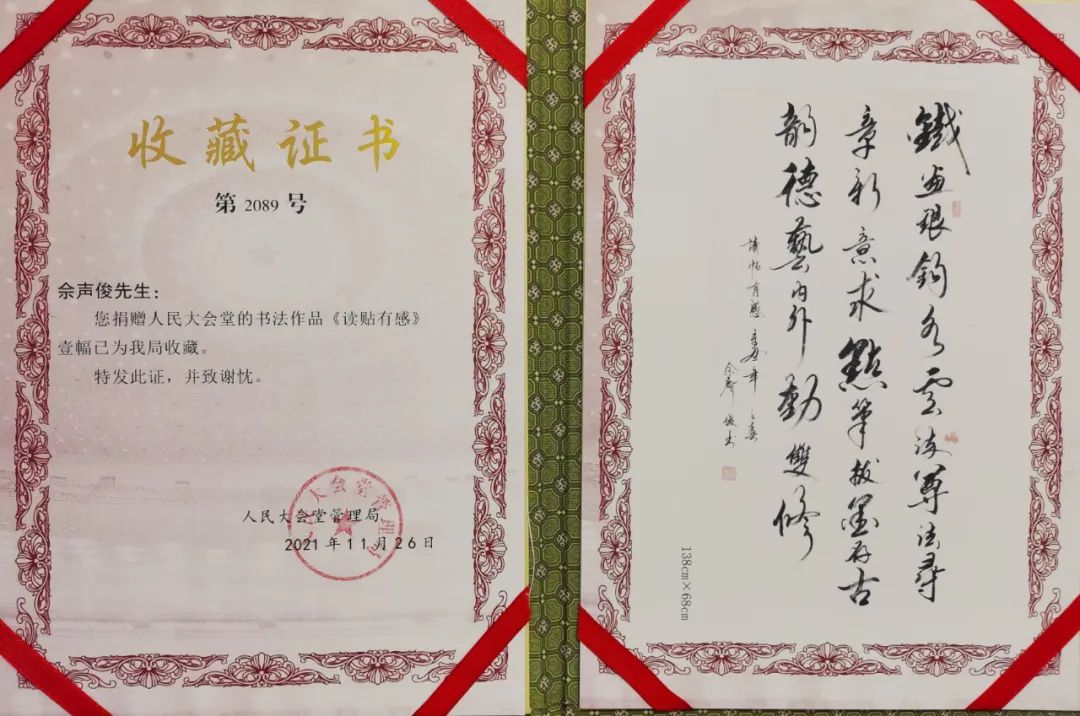 收藏证书
第 2089 号
佘声俊先生：
您捐赠人民大会堂的书法作品《读贴有感》
壹幅已为我局收藏。
特发此证，并致谢忱。
人民大会堂管理局
2021 年 11 月 26 日
鐵画银鈎雲尊法尋
章新意求點筆拔墨存古
韵德藝内外勤雙修
读帖有感 辛丑年之春
佘声俊书
138cm×68cm